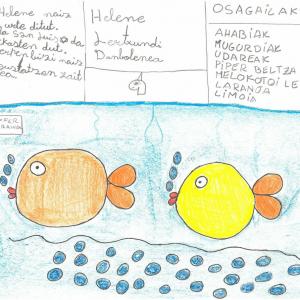 Helene naiz
urte ditut.
San Luis da
ikasten dut.
bizi naiz
gustatzen zait
Helene
Lertxundi
Danbolenea
OSAGAIAK
AHABIAK
MUGURDIAK
UDAREAK
PIPER BELTZA
MELOKOTOI
LARANJA
LIMOIA